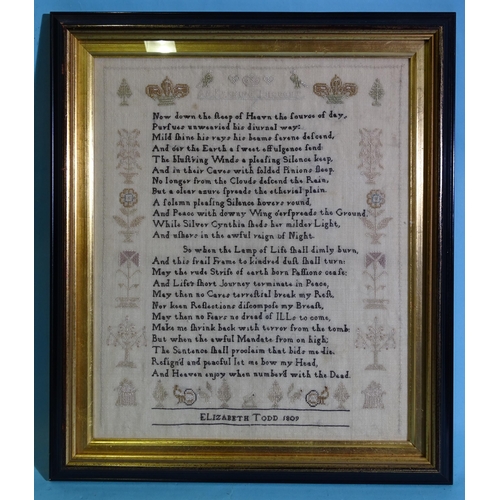 Now down the steep of Heavn the source of day,
Pursues unwearied his diurnal way:
Mild shine his rays his beams serene descend,
And o'er the Earth a sweet effulgence send
The blust'ring Winds a pleasing Silence keep,
And in their Caves with folded Pinions sleep.
No longer from the Clouds descend the Rain,
But a clear azure spreads the etherial plain.
A solemn pleasing Silence hovers round,
And Peace with downy Wing o'erspreads the Ground.
While Silver Cynthia sheds her milder Light,
And ushers in the awful reign of Night.
So when the Lamp of Life shall dimly burn,
And this frail Frame to kindred dust shall turn:
May the rude Strife of earth born Passions cease:
And Life's short Journey terminate in Peace,
May then no Cares terrestial break my Rest,
Nor keen Reflections discompose my Breast,
May then no Fears no dread of ILLs to come,
Make me shrink back with terror from the tomb:
But when the awful Mandate from on high;
The Sentence shall proclaim that bids me die.
Resign'd and peaceful let me bow my Head,
And Heaven enjoy when number'd with the Dead.
ELIZABETH TODD 1809